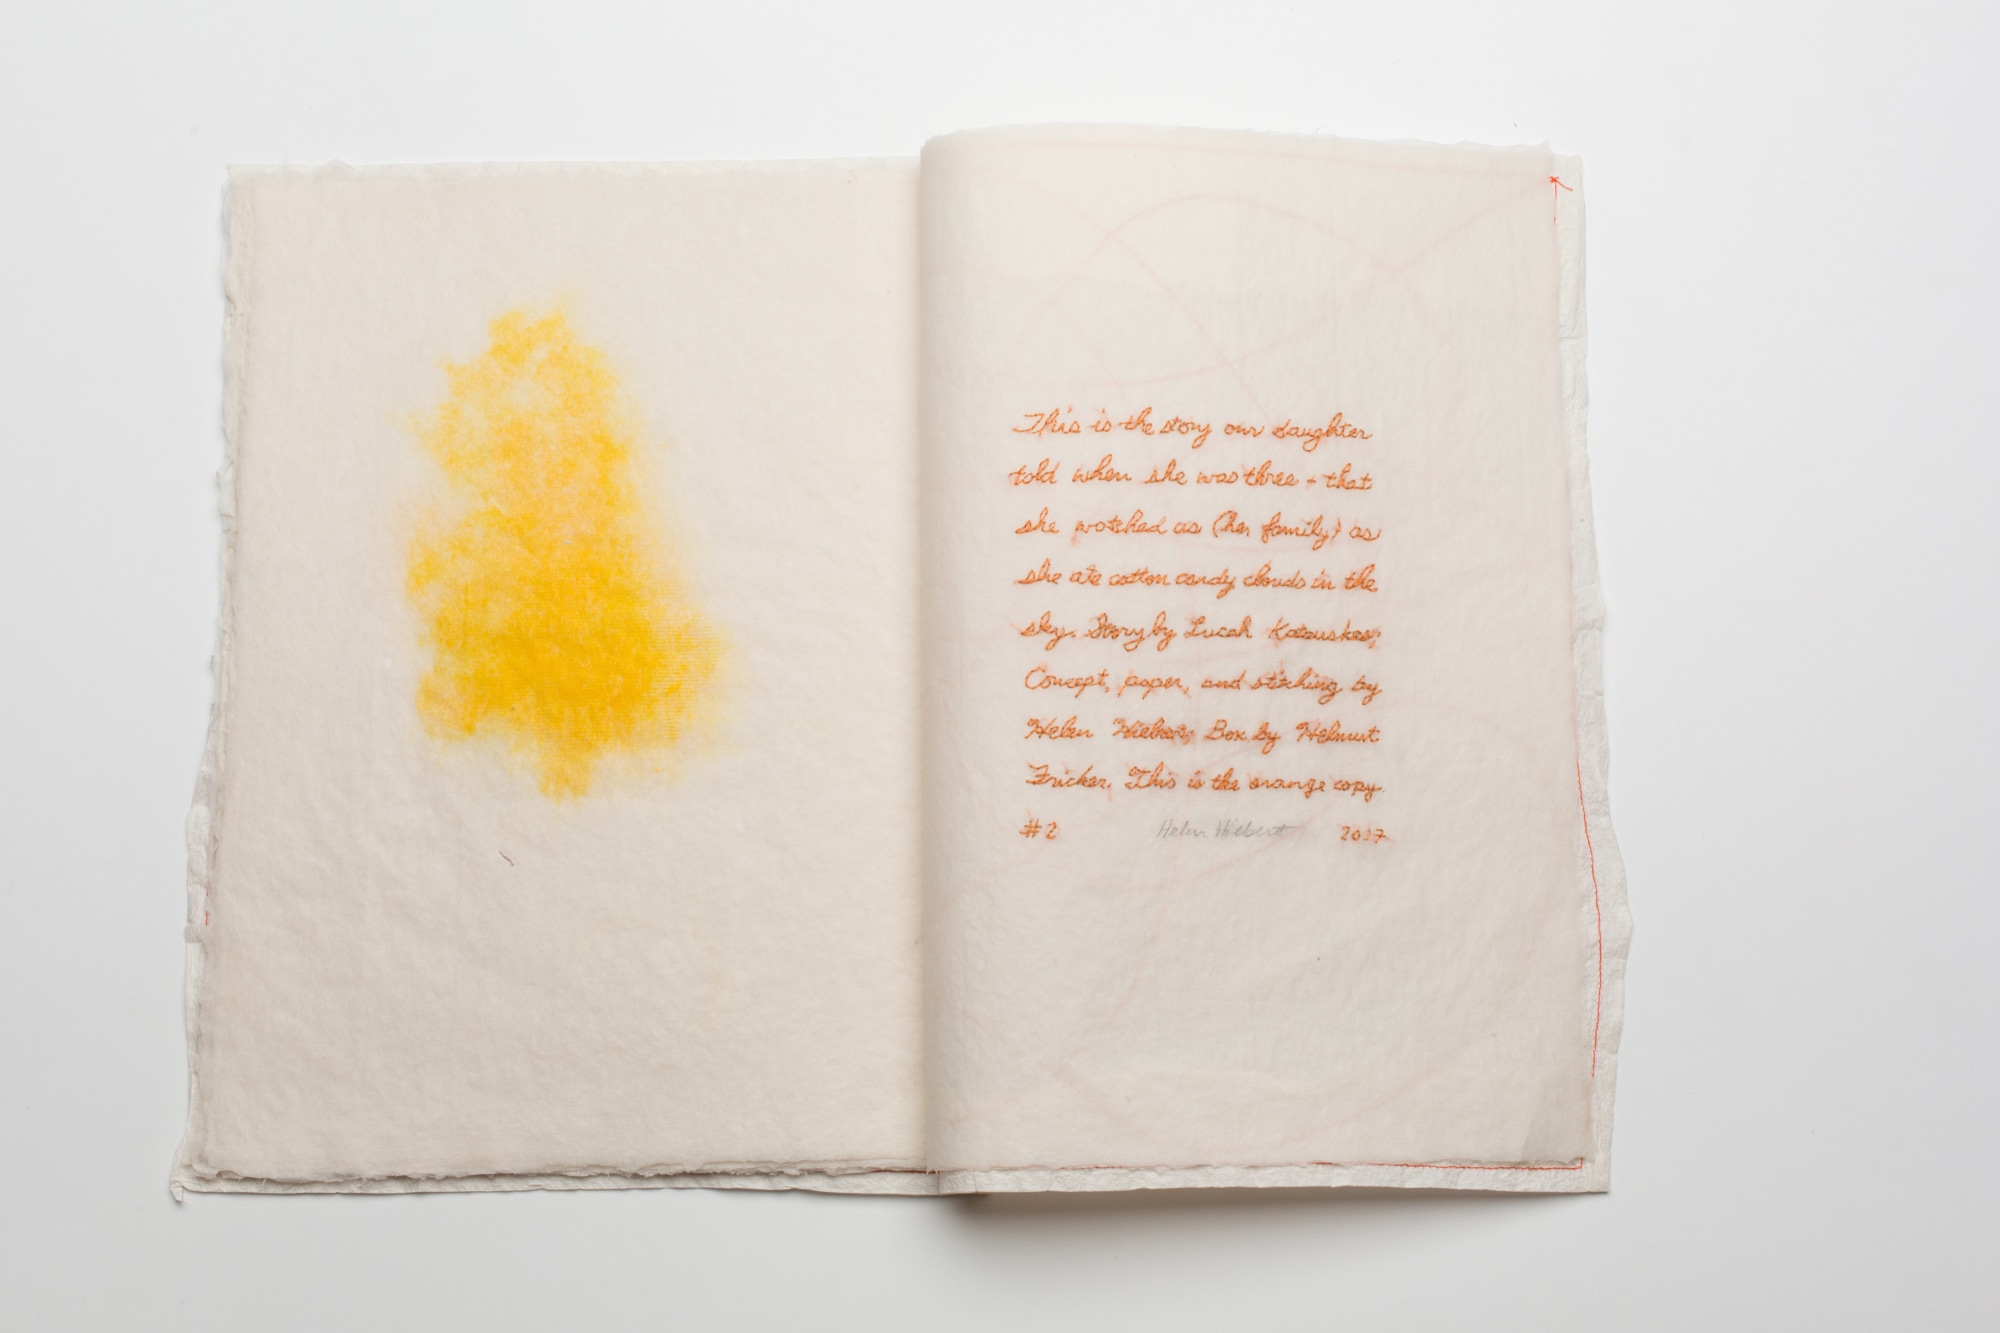 This is the story our daughter
told when she was three - that
she watched us (her family) as
she ate cotton candy clouds in the
sky. Story by Lucah Katauskas;
Concept, paper, and stitching by
Helen Hiebert; Box by Helmut
Fricker. This is the orange copy.
#2 Helen Hiebert 2017